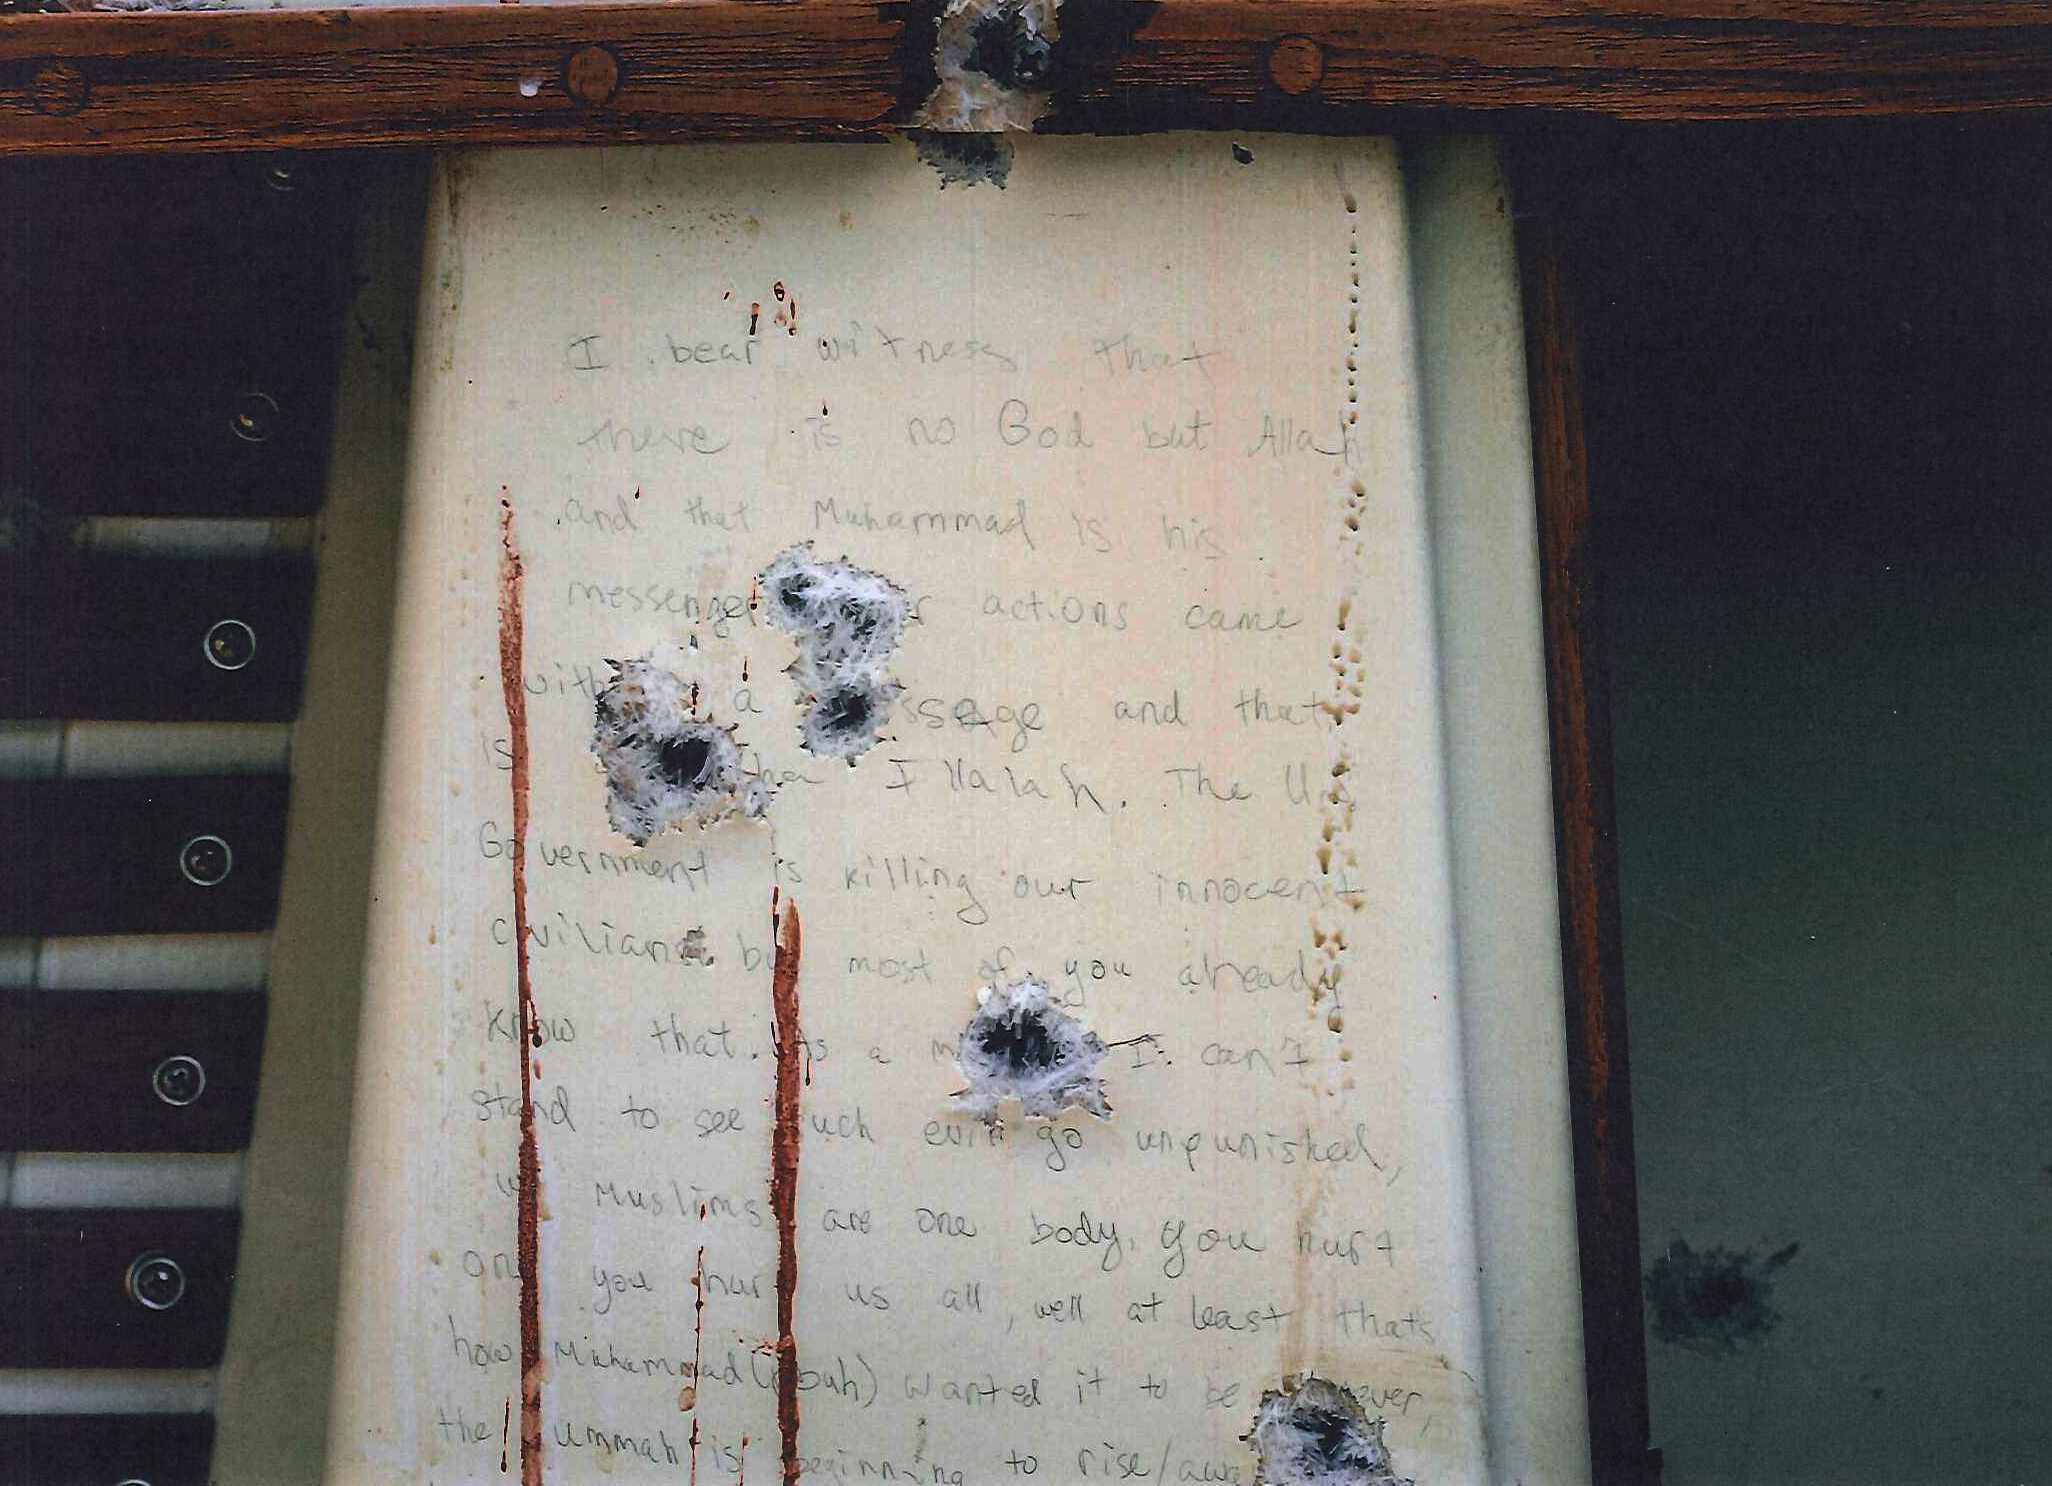 I bear witness that
there is no God but Allah
and that Muhammad is his
messenger r actions came
with a ssage and that
is ha Illalah. The U.S
Government is killing our innocent
civilians but most of you already
know that. As a m I can't
stand to see such evil go unpunished,
we Muslims are one body, you hurt
one you hurt us all, well at least thats
how Muhammad (pbuh) wanted it to be However,
the ummah is beginning to rise/awa